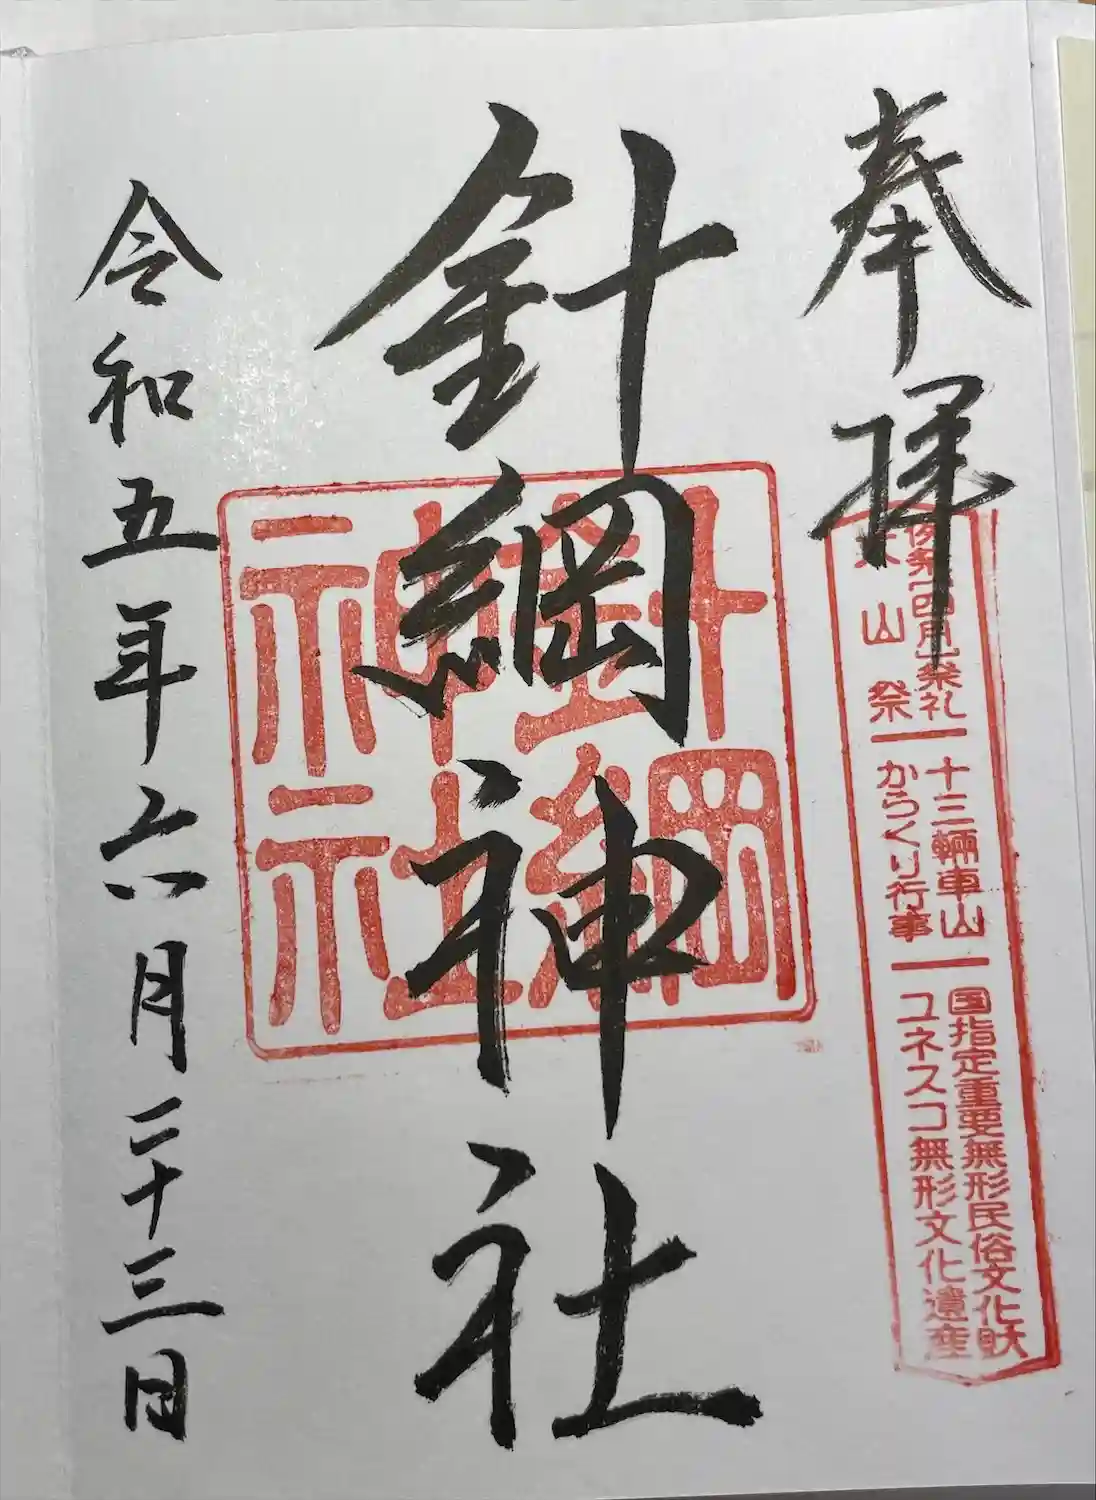 奉拝
例祭(四月)祭礼
犬山祭
十三輛車山
からくり行事
国指定重要無形民俗文化財
ユネスコ無形文化遺産
針綱神社
針綱
神社
令和五年六月二十三日